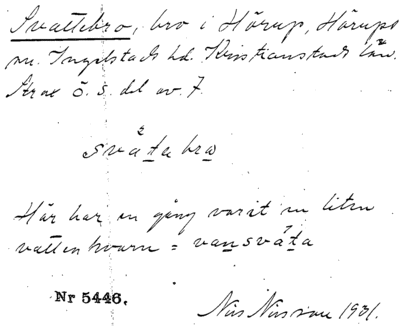 Svattebro, bro i Hörup, Hörups
sn. Ingelstads hd. Kristianstads län.
Strax ö. s. del av 7.
svátabro
Här har en gång varit en liten
vattenkvarn = vansváta
Nr 5446.
Nils Nilsson 1931.